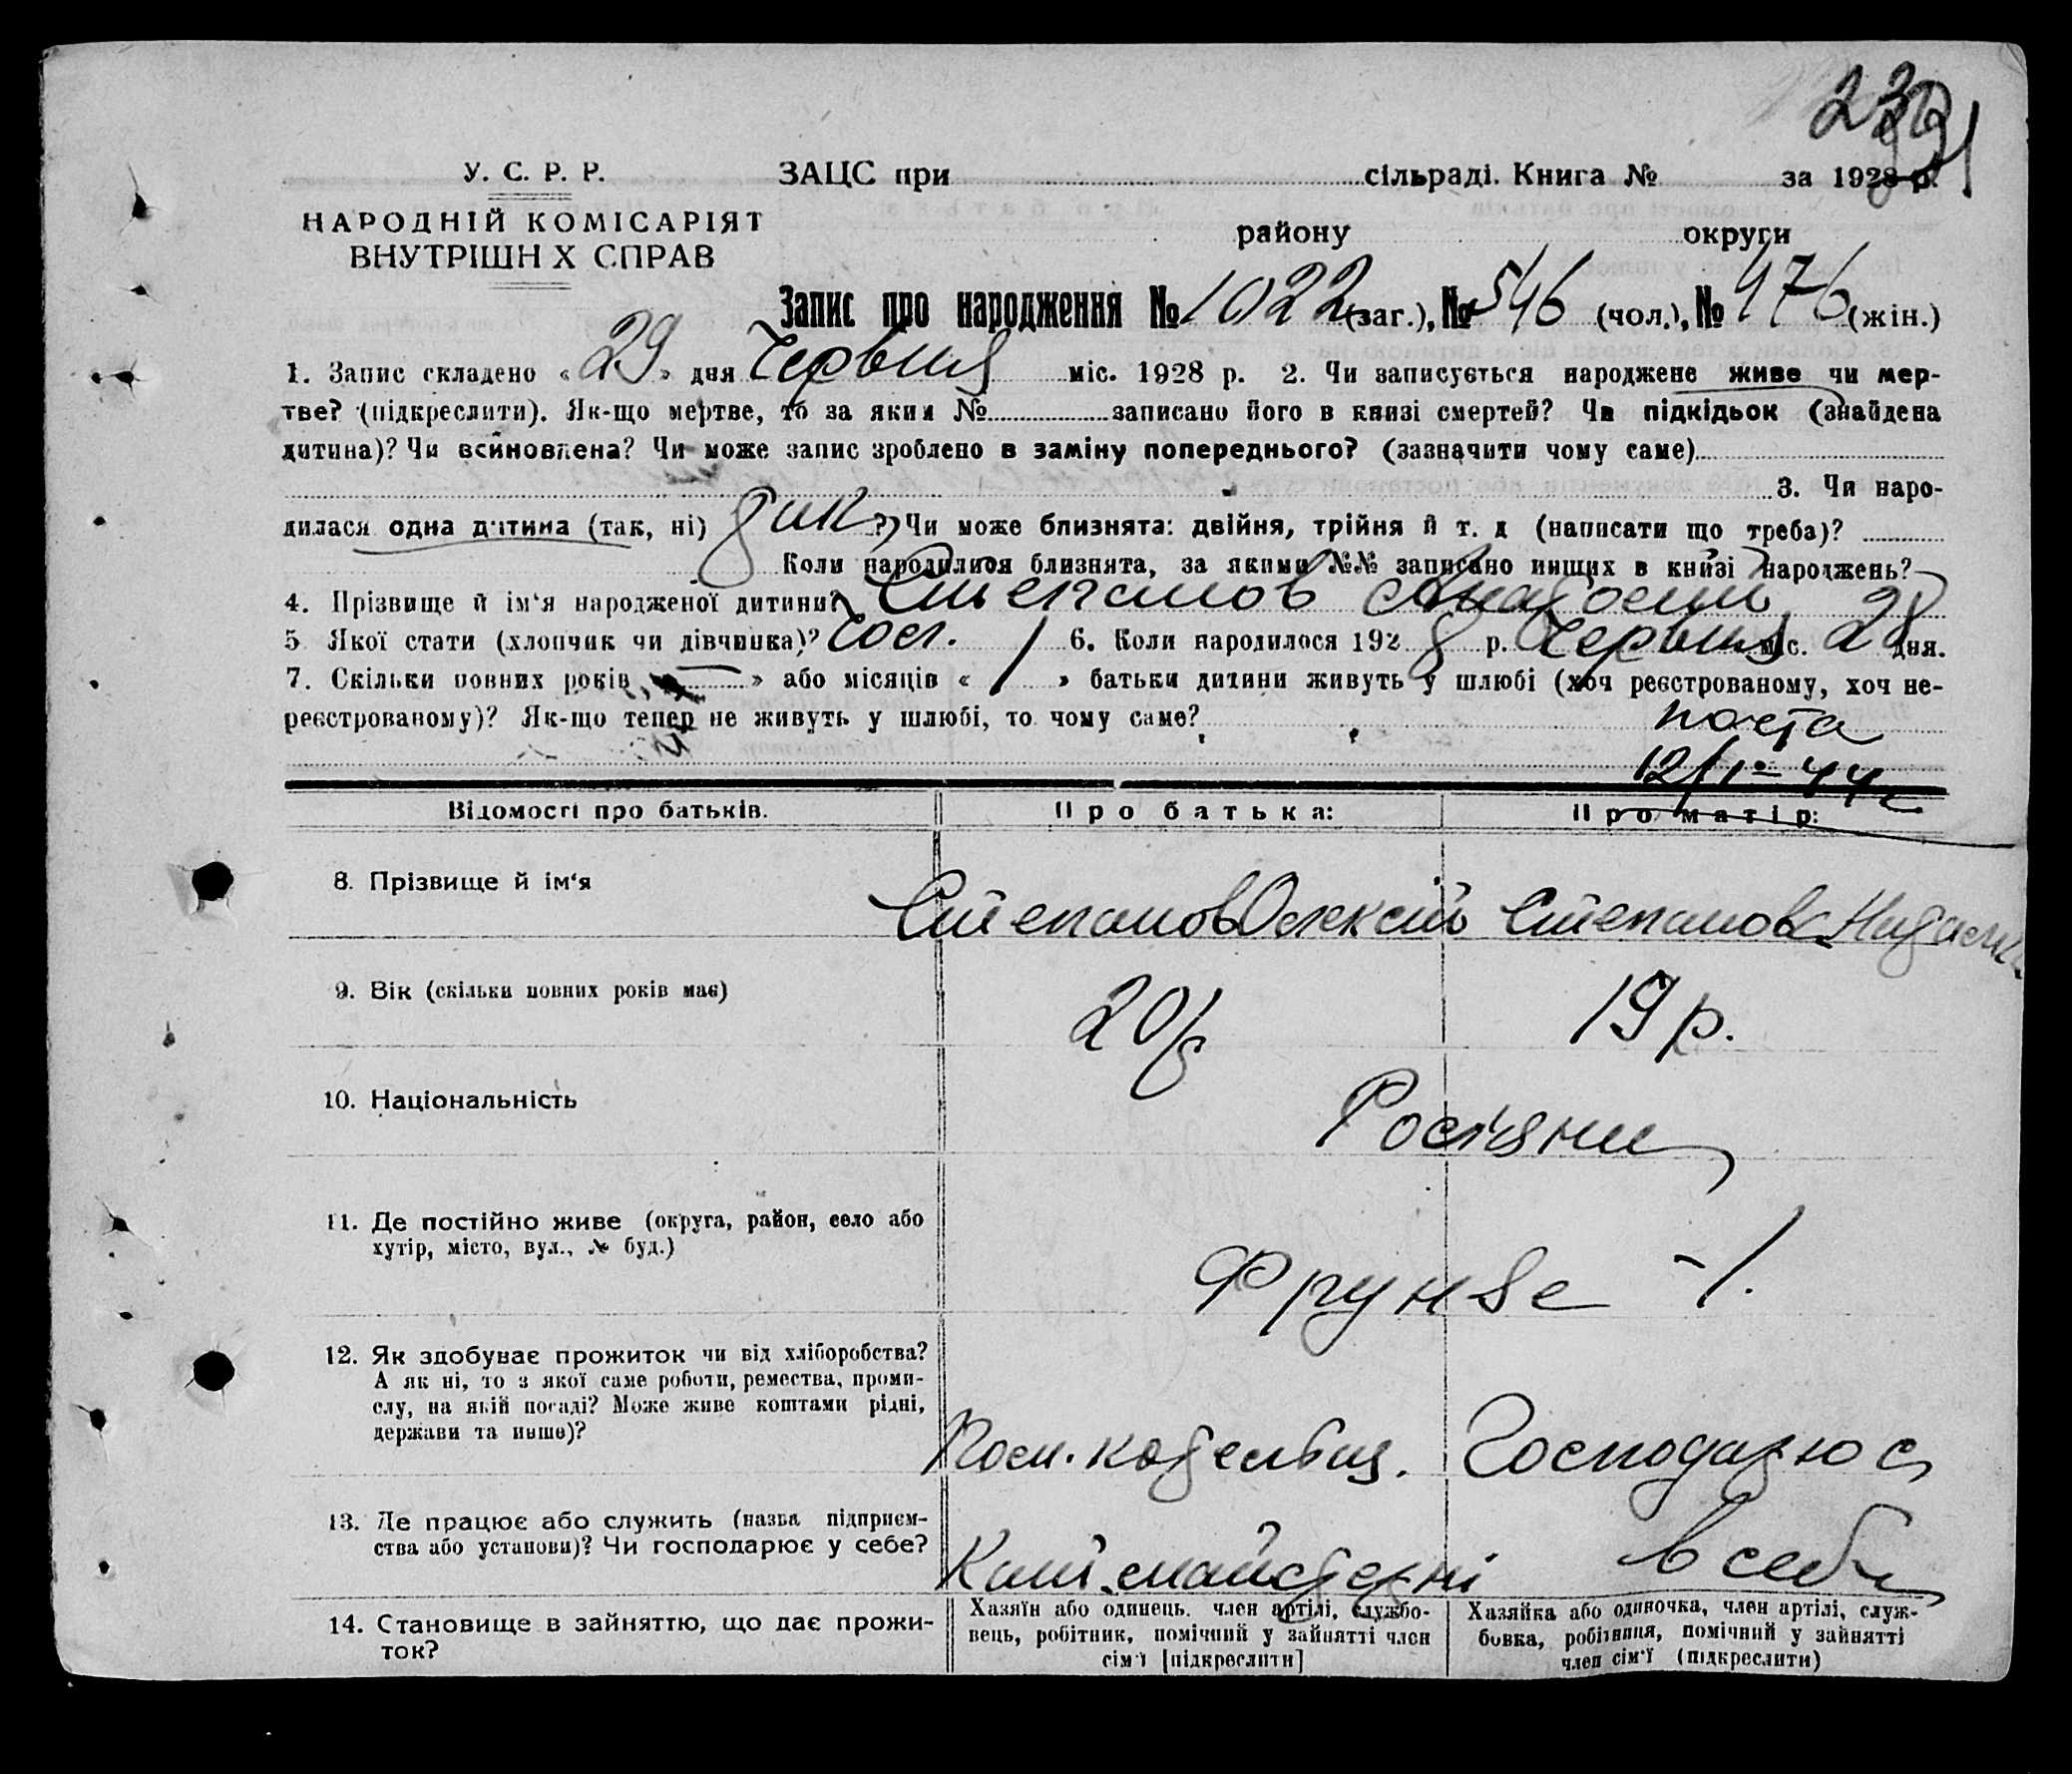 У. С. Р. Р.
ЗАЦС при сільраді. Книга № за 1928 р.
НАРОДНІЙ КОМІСАРІЯТ
ВНУТРІШН Х СПРАВ
району округи
Запис про народження № 1022 (заг.), № 546 (чол.), № 476 (жін.)
1. Запис складено « 29 » дня Червня міс. 1928 р. 2. Чи записується народжене живе чи мер-
тве? (підкреслити). Як-що мертве, то за яким № записано його в книзі смертей? Чи підкідьок (знайдена
дитина)? Чи всиновлена? Чи може запис зроблено в заміну попереднього? (зазначити чому саме)
3. Чи наро-
дилася одна дитина (так, ні) так ? Чи може близнята: двійня, трійня й т. д (написати що треба)?
Коли народилися близнята, за якими №№ записано инших в книзі народжень?
4. Прізвище й ім'я народженої дитини? Степанов
5 Якої стати (хлопчик чи дівчинка)? чол. 6. Коли народилося 1928 р. Червня міс. 28 дня.
7. Скільки повних років » або місяців « » батьки дитини живуть у шлюбі (хоч реєстрованому, хоч не-
реєстрованому)? Як-що тепер не живуть у шлюбі, то чому саме?
Відомості про батьків. Про батька: Про матір:
8. Прізвище й ім'я Степанов Олексій Степанова
9. Вік (скільки повних років має) 20 р 19 р.
10. Національність Росіяни
11. Де постійно живе (округа, район, село або
хутір, місто, вул., № буд.) Фрунзе - 1.
12. Як здобуває прожиток чи від хліборобства?
А як ні, то з якої саме роботи, ремества, проми-
слу, на якій посаді? Може живе коштами рідні,
держави та инше)? Господарює
13. Де працює або служить (назва підприєм-
ства або установи)? Чи господарює у себе? майстерні в себе
14. Становище в зайняттю, що дає прожи-
ток?
Хазяїн або одинець. член артілі, службо-
вець, робітник, помічний у зайнятті член
сім'ї [підкреслити]
Хазяйка або одиночка, член артілі, служ-
бовка, робітниця, помічний у зайнятті
член сім'ї (підкреслити)